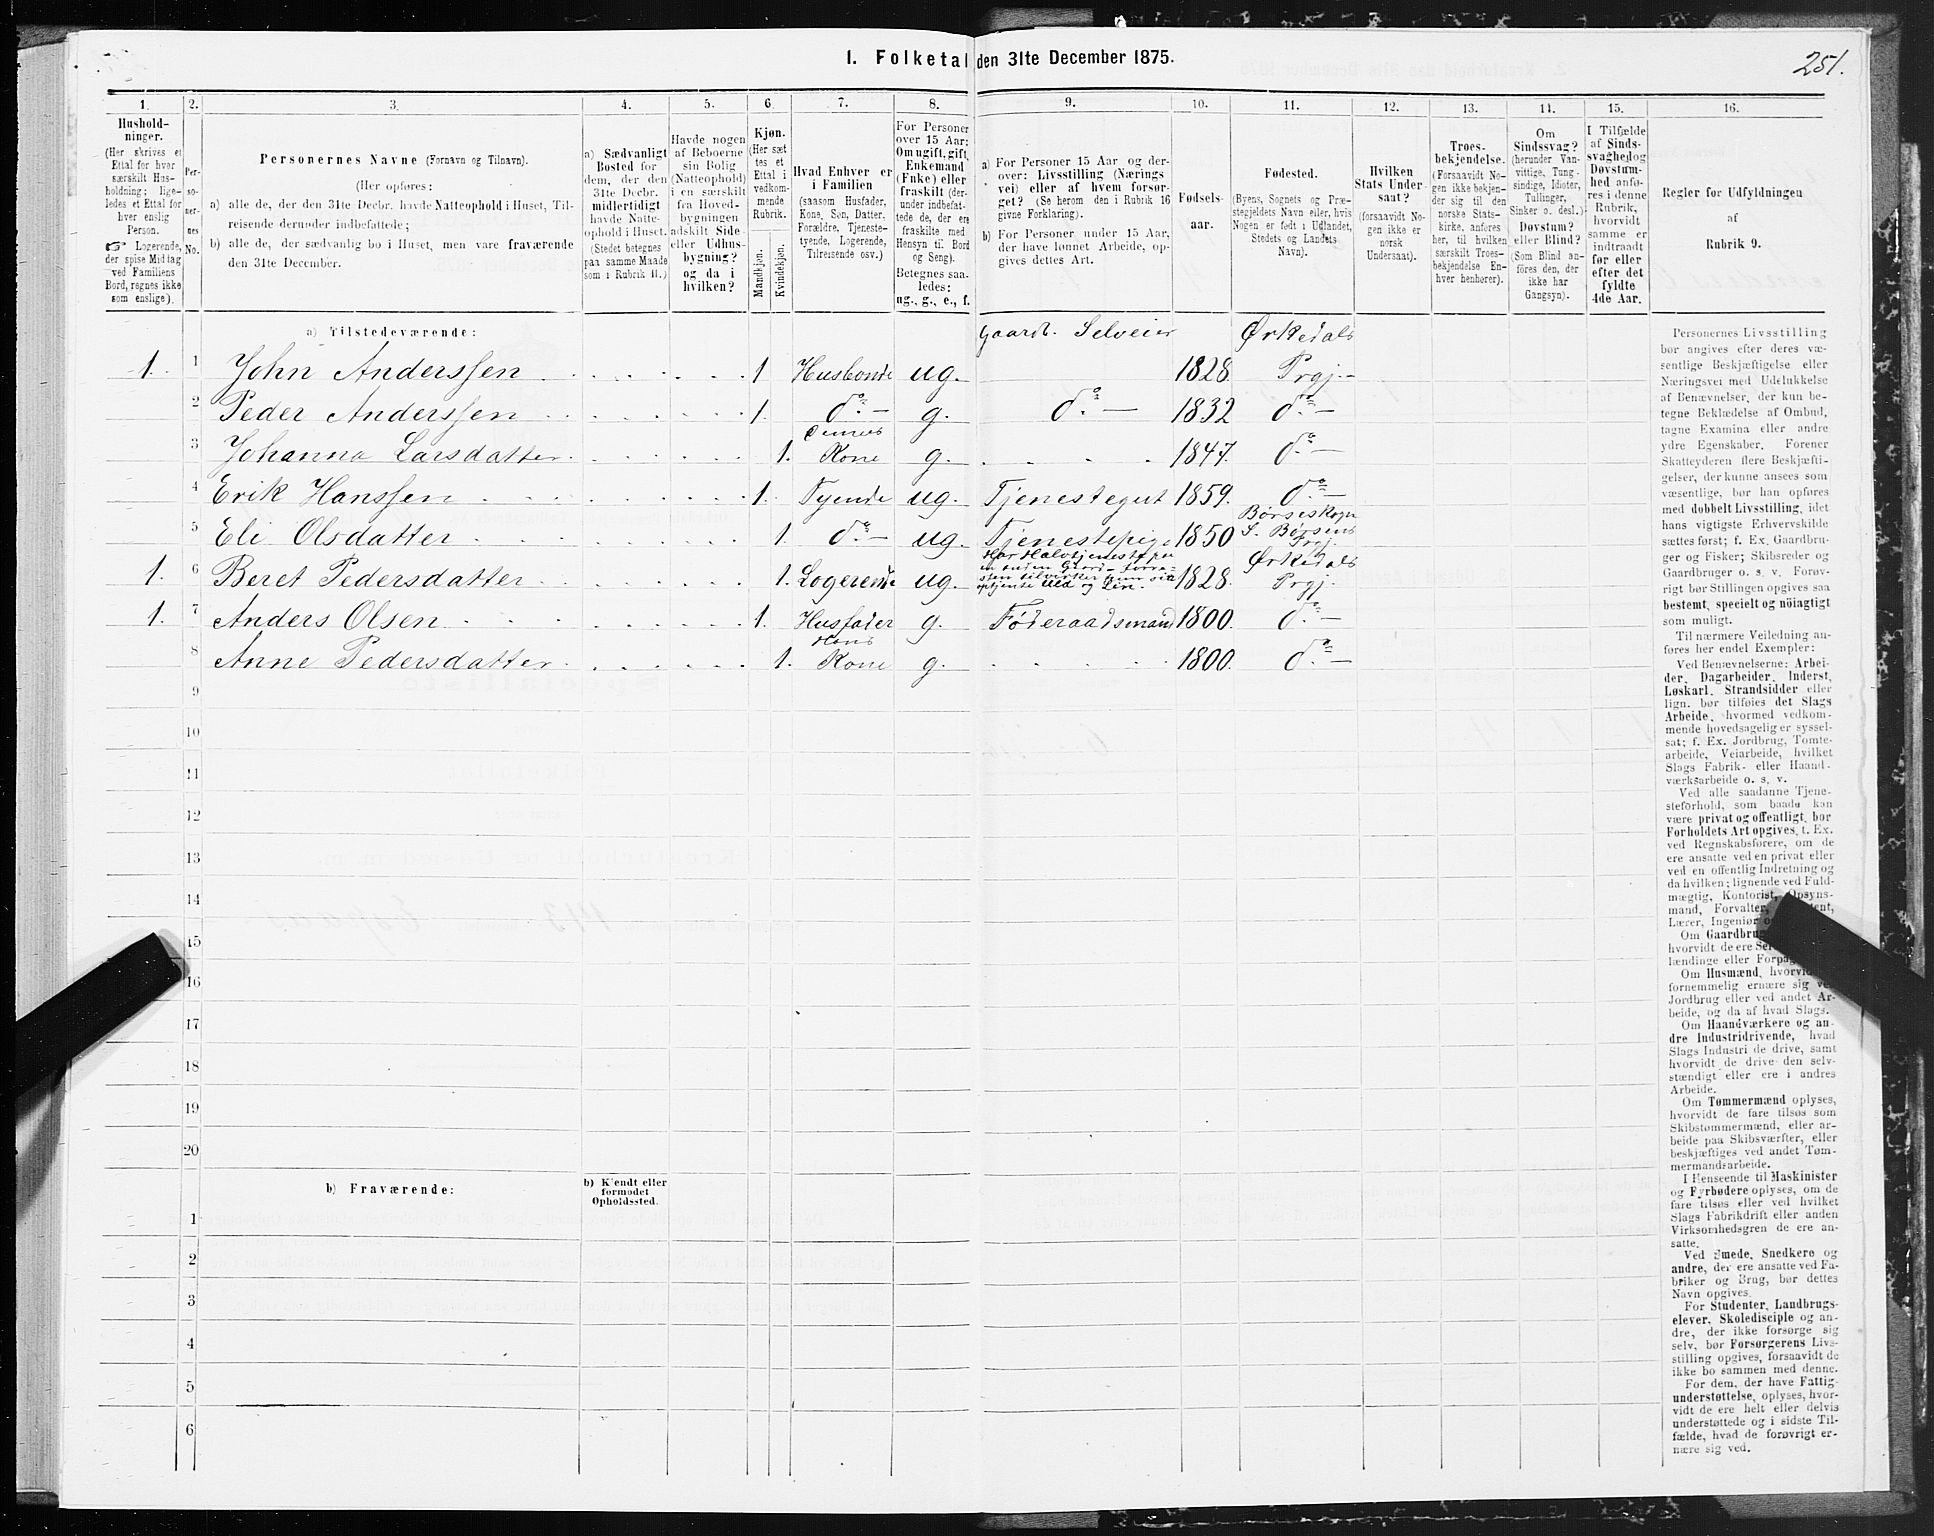 1. Folketal den 31te December 1875.
251.
1.
2.
3.
4.
5.
6.
7.
8.
9.
10.
11.
12.
13.
14.
15.
16.
Husholdninger.
(Her skrives et
Ettal for hver
særskilt Husholdning;
ligeledes et Ettal for
hver enslig
Person.
☞ Logerende,
der spise Middag
ved Familiens
Bord, regnes ikke
som enslige).
Personernes
No.
Personernes Navne (Fornavn og Tilnavn).
(Her opføres:
a) alle de, der den 31te Decbr. havde Natteophold i Huset, Tilreisende
derunder indbefattede;
b) alle de, der sædvanlig bo i Huset, men vare fraværende
den 31te December.
a) Sædvanligt
Bosted for
dem, der den
31te Decbr.
midlertidigt
havde Natteophold
i Huset.
(Stedet betegnes
paa samme Maade
som i Rubrik 11.)
Havde nogen
af Beboerne
sin Bolig
(Natteophold)
i en særskilt
fra Hovedbygningen
adskilt Side-
eller Udhusbygning?
og da i
hvilken?
Kjøn.
(Her sættes
et
Ettal i
vedkommende
Rubrik.
Mandkjøn.
Kvindekjøn.
Hvad Enhver er
i Familien
(saasom Husfader,
Kone, Søn, Datter,
Forældre, Tjenestetyende,
Logerende,
Tilreisende osv.)
For Personer
over 15 Aar;
Om ugift, gift,
Enkemand
(Enke) eller
fraskilt (derunder
indbefattede
de, der ere
fraskilte med
Hensyn til Bord
og Seng).
Betegnes saaledes:
ug., g., e., f.
a) For Personer 15 Aar og derover:
Livsstilling (Næringsvei)
eller af hvem forsørget?
(Se herom den i Rubrik 16
givne Forklaring).
b) For Personer under 15 Aar,
der have lønnet Arbeide, opgives
dettes Art.
Fødselsaar.
Fødested.
(Byens, Sognets og Præstegjeldets
Navn eller, hvis
Nogen er født i Udlandet,
Stedets og Landets
Navn).
Hvilken
Stats Undersaat?
(forsaavidt Nogen
ikke er
norsk
Undersaat).
Troesbekjendelse.
(Forsaavidt Nogen
ikke bekjender
sig til den
norske Statskirke,
anføres
her, til hvilken
særskilt Troesbekjendelse
Enhver
henhører).
Om
Sindssvag?
(herunder Vanvittige,
Tungsindige,
Idioter,
Tullinger,
Sinker o. desl.)
Døvstum?
eller Blind?
(Som Blind anføres
den, der
ikke har
Gangsyn).
I Tilfælde
af Sindssvaghed
og
Døvstumhed
anføres
i denne
Rubrik,
hvorvidt
samme er
indtraadt
før eller
efter det
fyldte
4de Aar.
Regler for Udfyldningen
af
Rubrik 9.
a) Tilstedeværende:
1. 1 John Anderssen 1 Husbonde ug. Gaardb. Selveier 1828 Ørkedals Prgj.
2 Peder Anderssen 1. do g. do 1832 do
3 Johanna Larsdatter 1. Dennes Kone g. 1847. do
4 Erik Hanssen 1. Tyende ug. Tjenestegut 1859. do
5 Eli Olsdatter 1. do ug. Tjenestepige 1850 Børseskogn S. Børsens Prgj.
1. 6 Beret Pedersdatter 1. Logerende ug. Har Halvtjeneste paa en anden Gaard 1828. Ørkedals Prgj.
1. 7 Anders Olsen 1. Husfader g. Føderaadsmand 1800. do
8 Anne Pedersdatter 1. Hans Kone g. 1800. do
9
10
11
12
13
15
16
17
18
19
20
b) Fraværende:
b) Kjendt eller
formodet
Opholdssted.
1
2
3
4
5
6
Personernes Livsstilling
bør angives efter deres væsentlige
Beskjæftigelse eller
Næringsvei med Udelukkelse
af Benævnelser, der kun betegne
Beklædelse af Ombud,
tagne Examina eller andre
ydre Egenskaber. Forener
Skatteyderen flere Beskjæftigelser,
der kunne ansees som
væsentlige, bør han opføres
med dobbelt Livsstilling, idet
hans vigtigste Erhvervskilde
sættes først; f. Ex. Gaardbruger
og Fisker; Skibsreder og
Gaardbruger o. s. v. Forøvrigt
bør Stillingen opgives saa
bestemt, specielt og nøiagtigt
som muligt.
Til nærmere Veiledning anføres
her endel Exempler:
Ved Benævnelserne: Arbeider,
Dagarbeider, Inderst,
Løskarl, Strandsidder eller
lign. bør tilføies det Slags
Arbeide, hvormed vedkommende
hovedsagelig er sysselsat;
f. Ex. Jordbrug, Tomtearbeide,
Veiarbeide, hvilket
Slags Fabrik- eller Haandværksarbeide
o. s. v.
Ved alle saadanne Tjenesteforhold,
som baade kan
være privat og offentligt, bør
Forholdets Art opgives, t. Ex.
ved Regnskabsførere, om de
ere ansatte ved en privat eller
ved en offentlig Indretning og
da hvilken; lignende ved Fuldmægtig,
Kontorist, Opsynsmand,
Forvalter,
Lærer, Ingeniør
Om Gaardbrug
hvorvidt de ere
lændinge eller
Om Husmænd,
fornemmelig ernære sig
Jordbrug eller ved andet Arbeide,
og da af hvad Slags.
Om Haandværkere og andre
Industridrivende, hvad
Slags Industri de drive, samt
hvorvidt de drive den selvstændigt
eller ere i andres
Arbeide.
Om Tømmermænd oplyses,
hvorvidt de fare tilsøs som
Skibstømmermænd, eller arbeide
paa Skibsværfter, eller
beskjæftiges ved andet Tømmermandsarbeide.
I Henseende til Maskinister
og Fyrbødere oplyses, om de
fare tilsøs eller ved hvilket
Slags Fabrikdrift eller anden
Virksomhedsgren de ere ansatte.
Ved Smede, Snedkere og
andre, der ere ansatte ved Fabriker
og Brug, bør dettes
Navn opgives.
For Studenter, Landbrugselever,
Skoledisciple og andre,
der ikke forsørge sig
selv, bør Forsørgerens Livsstilling
opgives, forsaavidt de
ikke bo sammen med denne.
For dem, der have Fattigunderstøttelse,
oplyses, hvorvidt
de ere helt eller delvis
understøttede og i sidste Tilfælde,
hvad de forøvrigt ernære
sig ved.